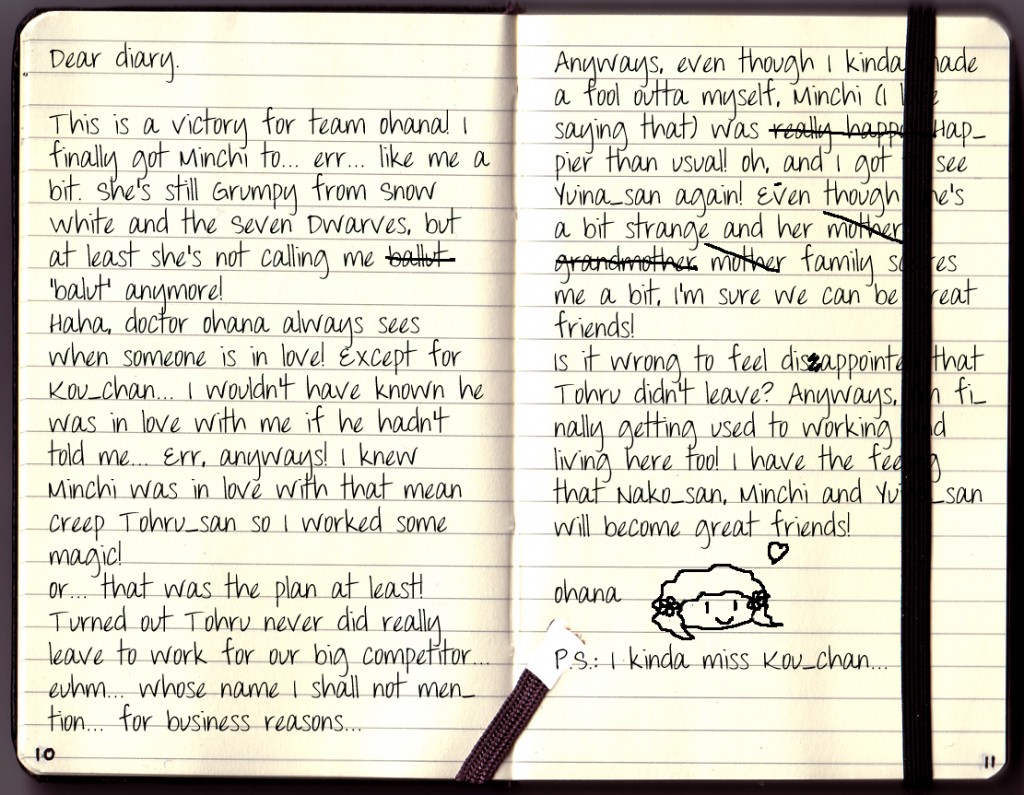 Dear diary.
This is a victory for team ohana! I
finally got Minchi to... err... like me a
bit. She's still Grumpy from Snow
White and the Seven Dwarves, but
at least she's not calling me ballut
'balut' anymore!
Haha, doctor ohana always sees
when someone is in love! Except for
Kou_chan... I wouldn't have known he
was in love with me if he hadn't
told me... Err, anyways! I knew
Minchi was in love with that mean
creep Tohru_san so I worked some
magic!
or... that was the plan at least!
Turned out Tohru never did really
leave to work for our big competitor...
euhm... whose name I shall not men_
tion... for business reasons...
10
Anyways, even though I kinda made
a fool outta myself, Minchi (I love
saying that) was really happy Hap_
pier than usual! oh, and I got to see
Yuina_san again! Even though she's
a bit strange and her mother
grandmother mother family scares
me a bit, I'm sure we can be great
friends!
Is it wrong to feel disappointed that
Tohru didn't leave? Anyways, I'm fi_
nally getting used to working and
living here too! I have the feeling
that Nako_san, Minchi and Yuina_san
will become great friends!
ohana
P.S.: I kinda miss Kou_chan...
11